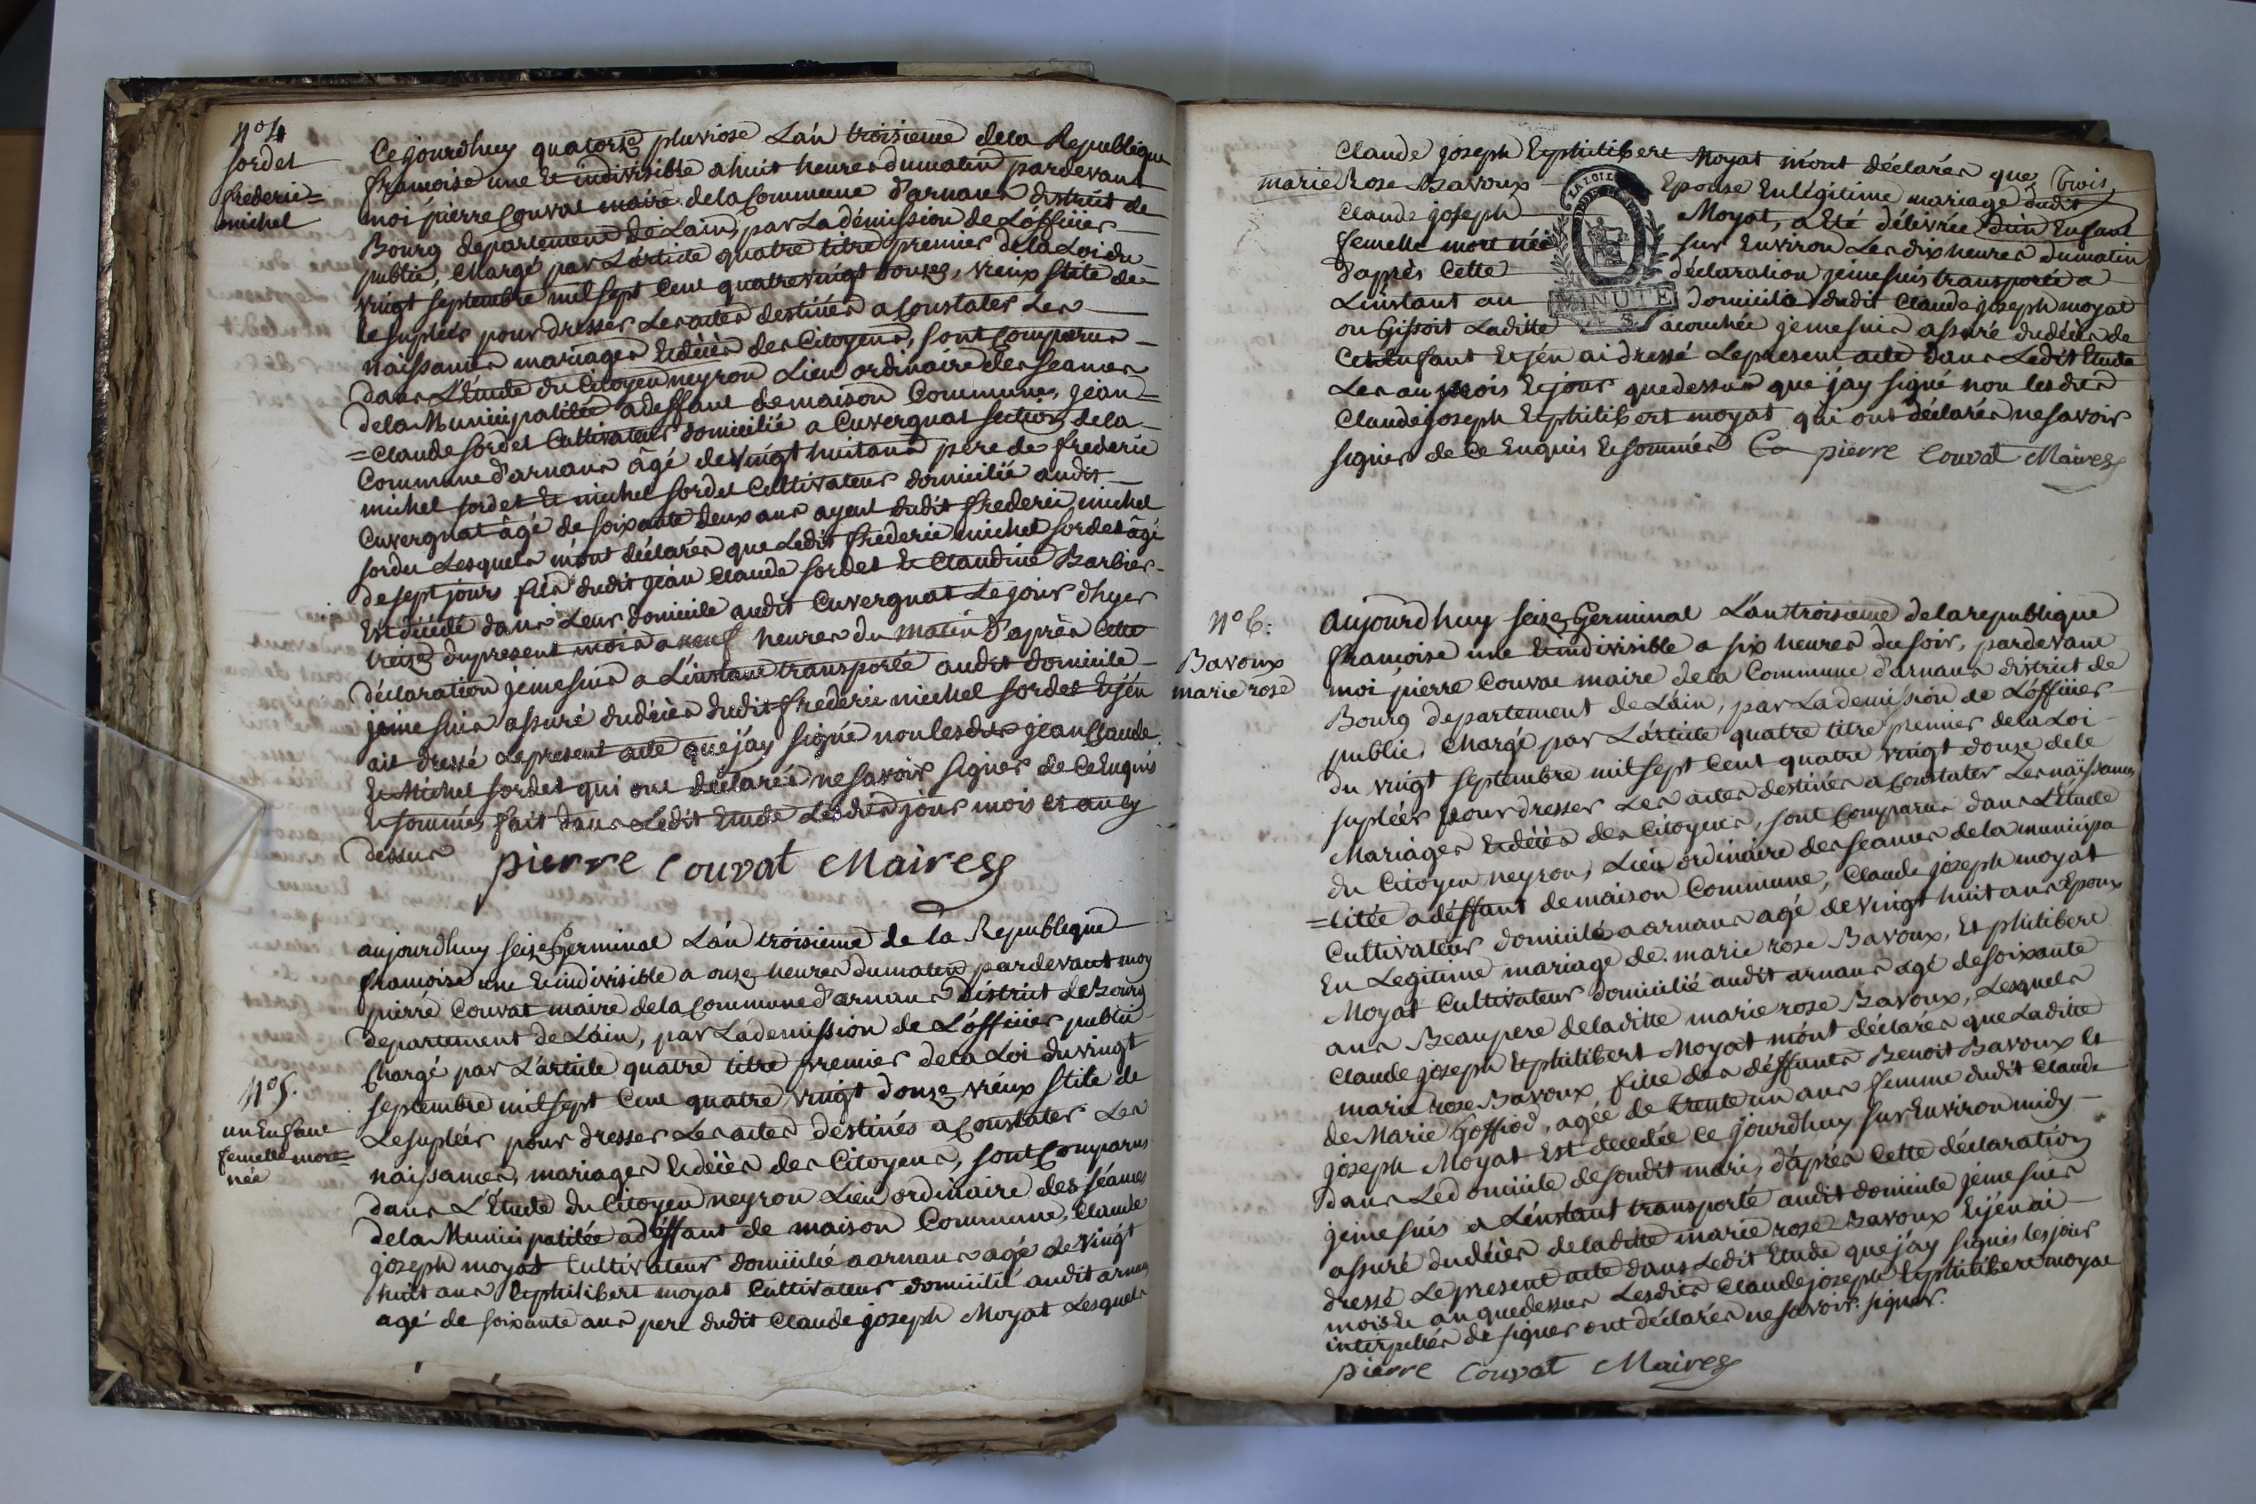 N° 4
Sordet
frederic=
michel
Cejourdhuy quatorze pluviose L'an troisieme dela Republique
francoise une et indivisible a huit heures dumatin pardevant
moi pierre Couvat maire dela Commune d'arnans district de
Bourg departement de Lain, par La démission de L'officier
public, Chargé par L'article quatre titre premier de la Loi du
vingt septembre mil sept Cent quatrevingt douze, vieux stile de
le supléer pour dresser Les actes destinés a Constater Les
naissances mariages et décès des Citoyens, sont Comparus
dans L'Etude du Citoyen neyron Lieu ordinaire des seances
dela Municipalitée adeffaut de maison Commune, jean=
=claude sordet Cultivateur domicilié a Cuvergnat section dela
Commune d'arnans âgé de vingt huit ans pere de frederic
michel sordet et michel sordet Cultivateur domicilié audit
Cuvergnat âgé de soixante deux ans ayeul dudit frederic michel
sordet Lesquels m'ont déclarés que Ledit frederic michel sordet âgé
de sept jours fils dudit jean Claude sordet et Claudine Barbier
Est décédé dans Leur domicile audit Cuvergnat Le jour d'hyer
treize du present mois a neuf heures du matin D'après Cette
déclaration jemesuis a L'instant transporté audit domicile
jeme suis assuré dudécès dudit frederic michel sordet et j'en
ait dressé Lepresent acte que j'ay signé non lesdits jean Claude
et Michel sordet qui ont déclarés ne savoir signer de Ce Enquis
et sommés fait dans Ledit Etude Lesdits jour mois et an cy
dessus pierre Couvat Maire
N° 5.
un Enfant
femelle mort=
née
aujourdhuy seize Germinal L'an troisieme de la Republique
francoise une et indivisible a onze heures dumatin pardevant moy
pierre Couvat maire dela Commune d'arnans District de Bourg
departement de Lain, par Lademission de L'officier public
Chargé par L'article quatre titre premier dela Loi du vingt
septembre mil sept Cent quatre vingt douze vieux stile de
Lesupléer pour dresser Les actes destinés a Constater Les
naissances, mariages et décès des Citoyens, sont Comparus
dans L'Etude du Citoyen neyron Lieu ordinaire des séances
dela Municipalitée adéffaut de maison Commune, Claude
joseph moyat Cultivateur domicilié a arnans agé de vingt
huit ans et philibert moyat Cultivateur domicilié audit arnans
agé de soixante ans pere dudit Claude joseph Moyat Lesquels
Claude joseph et philibert Moyat m'ont déclarés que trois
marie Rose Bavoux Epouse En légitime mariage dudit
Claude joseph Moyat, a Eté délivrée d'un Enfant
femelle mort née sur Environ Les dix heures dumatin
d'après Cette déclaration jeme suis transporté a
L'instant au domicile dudit Claude joseph moyat
ou Gissoit Laditte acouchée jeme suis assuré dudécès de
Cet Enfant et j'en ai dressé Le present acte dans Ledit Etude
Les an mois et jour que dessus que j'ay signé non lesdits
Claude joseph et philibert moyat qui ont déclarés ne savoir
signer de Ce Enquis et sommés pierre Couvat Maire
LA LOI
MINUTE
N° 6:
Bavoux
marie rose
aujourdhuy seize Germinal L'an troisieme dela republique
francoise une et indivisible a six heures du soir, pardevant
moi pierre Couvat maire dela Commune d'arnans district de
Bourg departement de Lain, par Lademission de L'officier
public, Chargé par L'article quatre titre premier dela Loi
du vingt septembre mil sept Cent quatre vingt douze dele
supléer pour dresser Les actes destinés a Constater Les naissances
Mariages et décès des Citoyens, sont Comparus dans L'Etude
du Citoyen neyron, Lieu ordinaire des seances dela municipa
=litée a déffaut de maison Commune, Claude joseph moyat
Cultivateur domicilié a arnans agé de vingt huit ans Epoux
En Legitime mariage de marie rose Bavoux, et philibert
Moyat Cultivateur domicilié audit arnans agé de soixante
ans Beaupere deladitte marie rose Bavoux, Lesquels
Claude joseph et philibert Moyat m'ont déclarés que Laditte
marie rose Bavoux, fille des déffunts Benoit Bavoux et
de Marie Goffiod, agée de trente un ans femme dudit Claude
joseph Moyat Est decedée ce jourdhuy sur Environ midy
dans Ledomicile desondit mari, d'après Cette déclaration
jeme suis a L'instant transporté audit domicile jeme suis
assuré dudécès deladitte marie rose Bavoux et j'en ai
dressé Le present acte dans Ledit Etude que j'ay signés les jour
mois et an que dessus Lesdits Claude joseph et philibert moyat
interpellés de signer ont déclarés ne savoir signer.
pierre Couvat Maire